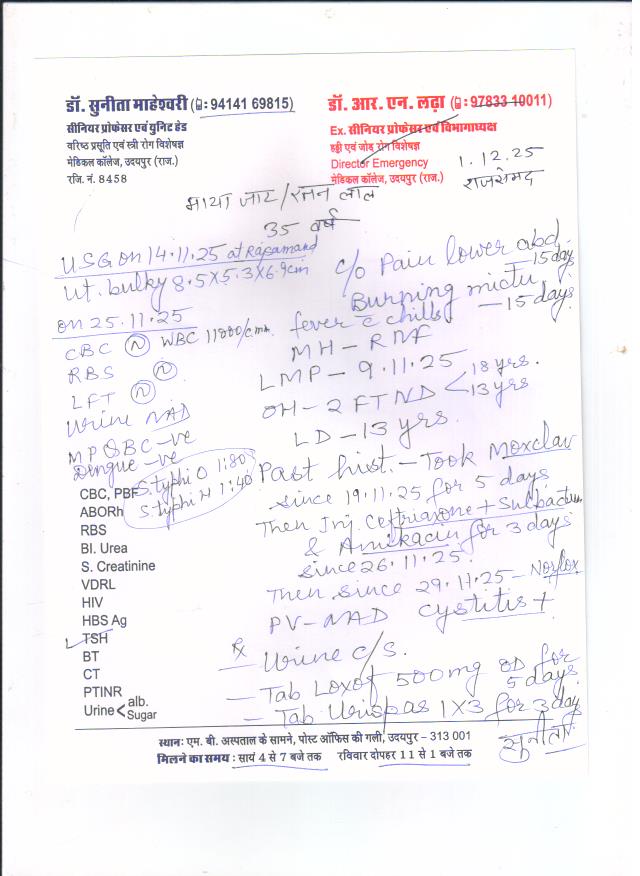 डॉ. सुनीता माहेश्वरी (: 94141 69815)
सीनियर प्रोफेसर एवं युनिट हेड
वरिष्ठ प्रसूति एवं स्त्री रोग विशेषज्ञ
मेडिकल कॉलेज, उदयपुर (राज.)
रजि. नं. 8458
डॉ. आर. एन. लढ़ा (: 97833 10011)
Ex. सीनियर प्रोफेसर एवं विभागाध्यक्ष
हड्डी एवं जोड़ रोग विशेषज्ञ
Director Emergency
मेडिकल कॉलेज, उदयपुर (राज.)
1.12.25
राजसमद
माया जाट/रतन लाल
35 वर्ष
USG on 14.11.25 at Rajsamand
Ut. bulky 8.5X5.3X6.9cm
on 25.11.25
CBC (N) WBC 11000/cmm.
RBS (N)
LFT (N)
Urine NAD
MP QBC -ve
Dengue -ve
S.typhi O 1:80
S.typhi H 1:40
c/o Pain lower abd. — 15 days
Burning mictu
fever c̄ chills — 15 days
MH – RNF
LMP – 9.11.25
OH – 2 FTND < 18 yrs.
13 yrs
LD – 13 yrs.
Past hist. – Took Moxclav
since 19.11.25 for 5 days
Then Inj. Ceftriaxone + Sulbactum
& Amikacin for 3 days
since 26.11.25.
Then since 29.11.25 – Norflox
PV – NAD cystitis +
CBC, PBF
ABORh
RBS
Bl. Urea
S. Creatinine
VDRL
HIV
HBS Ag
✓ TSH
BT
CT
PTINR
Urine < alb.
Sugar
Rx
— Urine c/s.
— Tab Loxof 500mg OD for
5 days
— Tab Urispas 1X3 for 3 day
सुनीता
स्थान: एम. बी. अस्पताल के सामने, पोस्ट ऑफिस की गली, उदयपुर – 313 001
मिलने का समय : सायं 4 से 7 बजे तक रविवार दोपहर 11 से 1 बजे तक